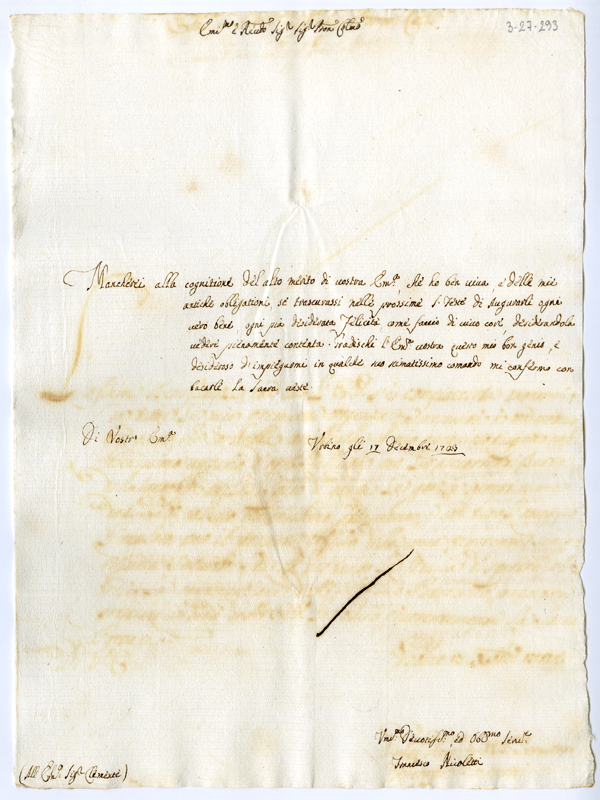 3-27-293
Em.mo e Reu.mo Sig.r Sig.r Pron Col.mo
Mancherei alla cognitione del alto merito di vostra Em.a che ho ben viva, e delle mie
antiche obligationi, se trascurassi nelle prossime S. feste di Augurarle ogni
vero bene, ogni più desiderata felicità come faccio di vivo core, desiderandola
vedere pienamente contenta. Gradischi l'Em.a vostra questo mio bon genio, e
desideroso d'impiegarmi in qualche suo stimatissimo comando mi confermo con
baciarle la Sacra veste.
Di Vostr. Em.a
Urbino gli 17 decembre
Um.mo Devotiss.mo, ed Obb.mo Serv.e
Francesco Nicoletti
(All Em.o Sig.r Clemente)